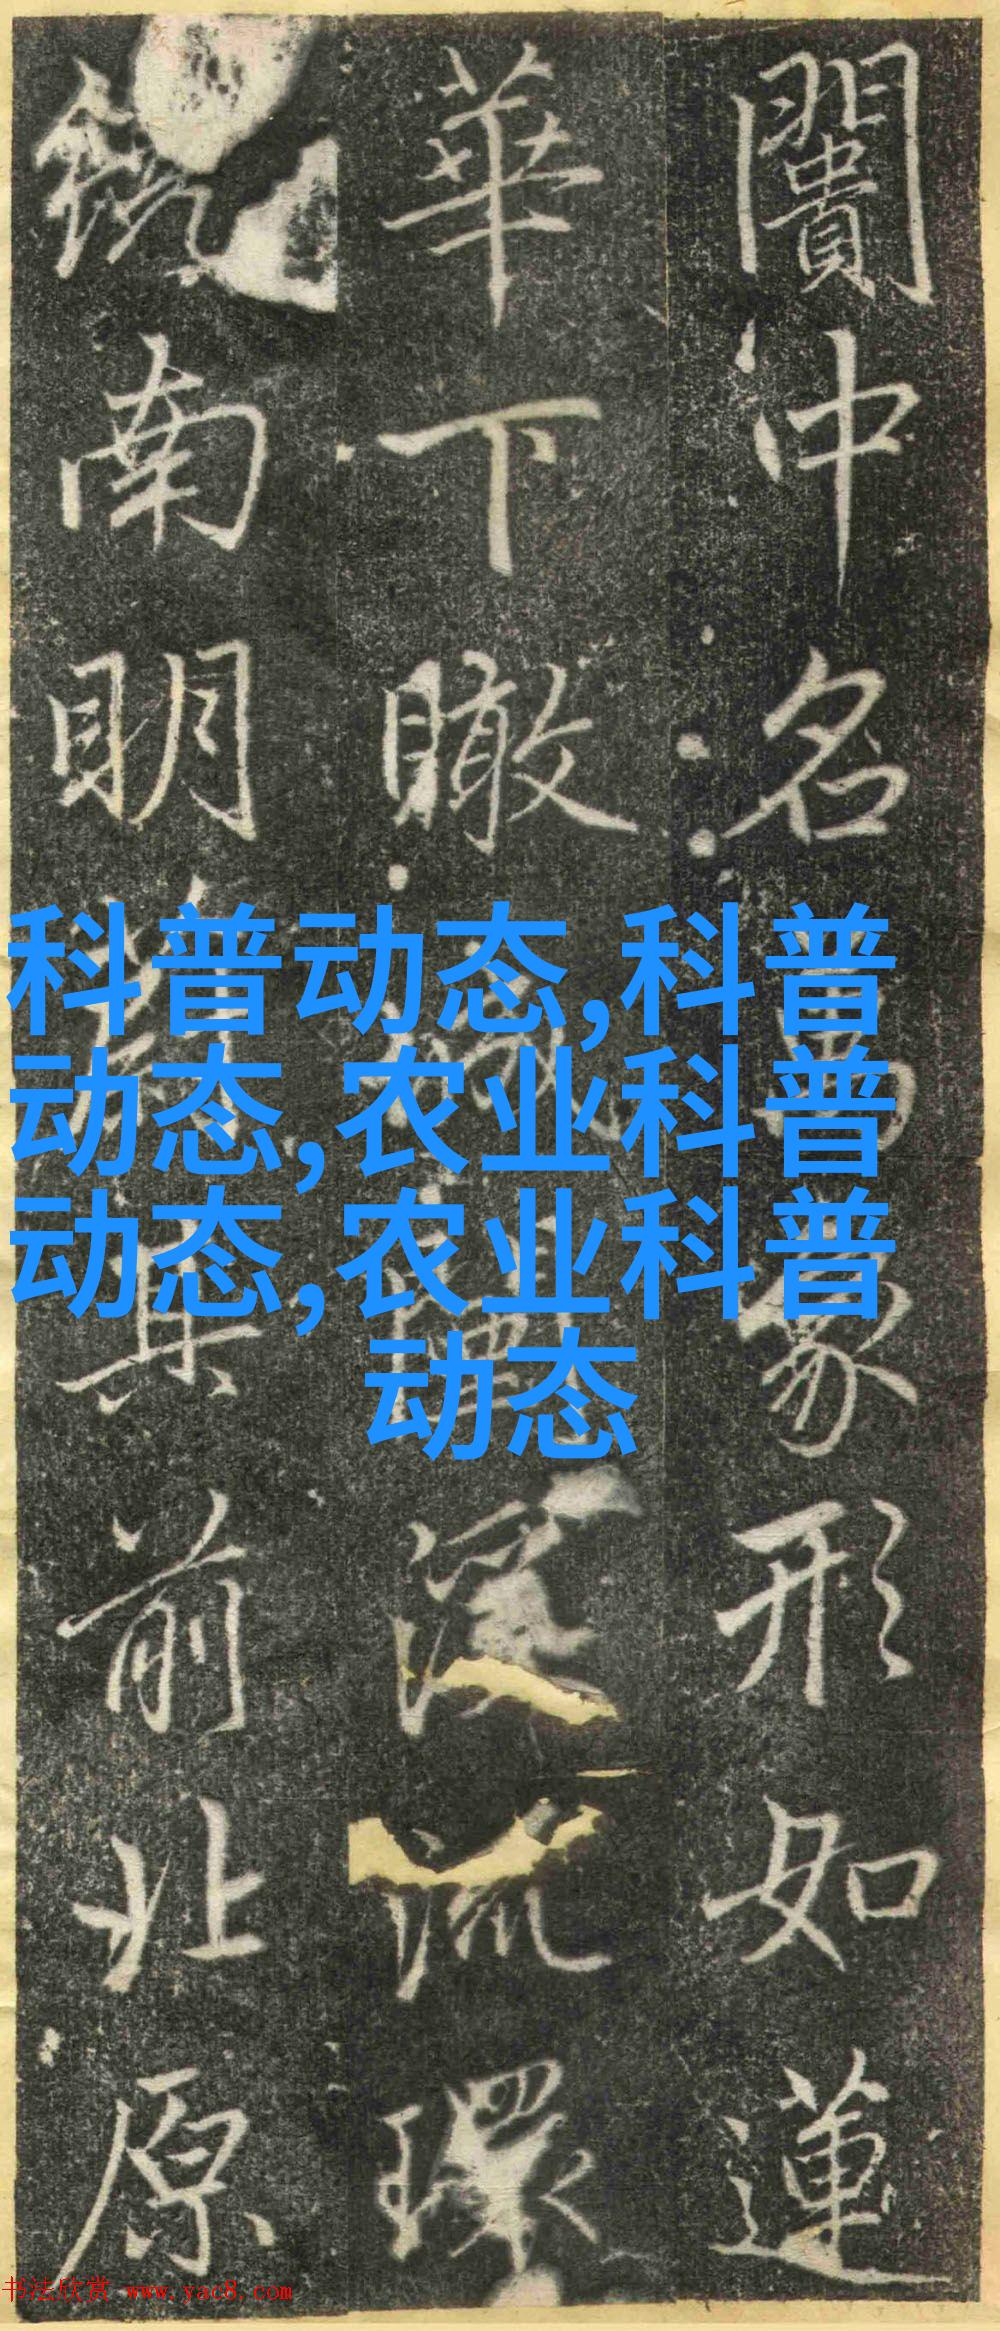 闠冲名象形如蓮
華下瞰環
南明其前北原
科普动态,科普
动态,农业科普
动态,农业科普
动态
书法欣赏 www.yac8.com